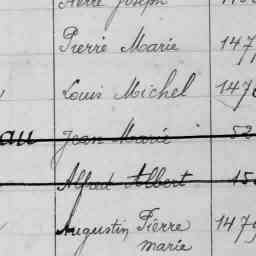 Pierre Joseph
Pierre Marie 147
Louis Michel 147
au Jean Marie 52
Alfred Albert 15
Augustin Pierre 147
marie